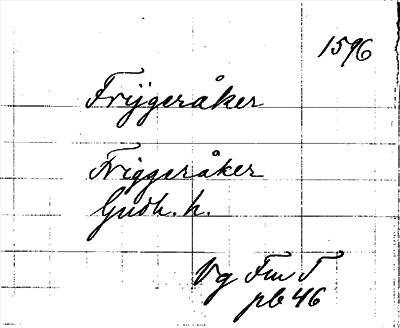 1596
Frijgeråker
Friggeråker
Gudh. h.
Vg Fm T
pb 46